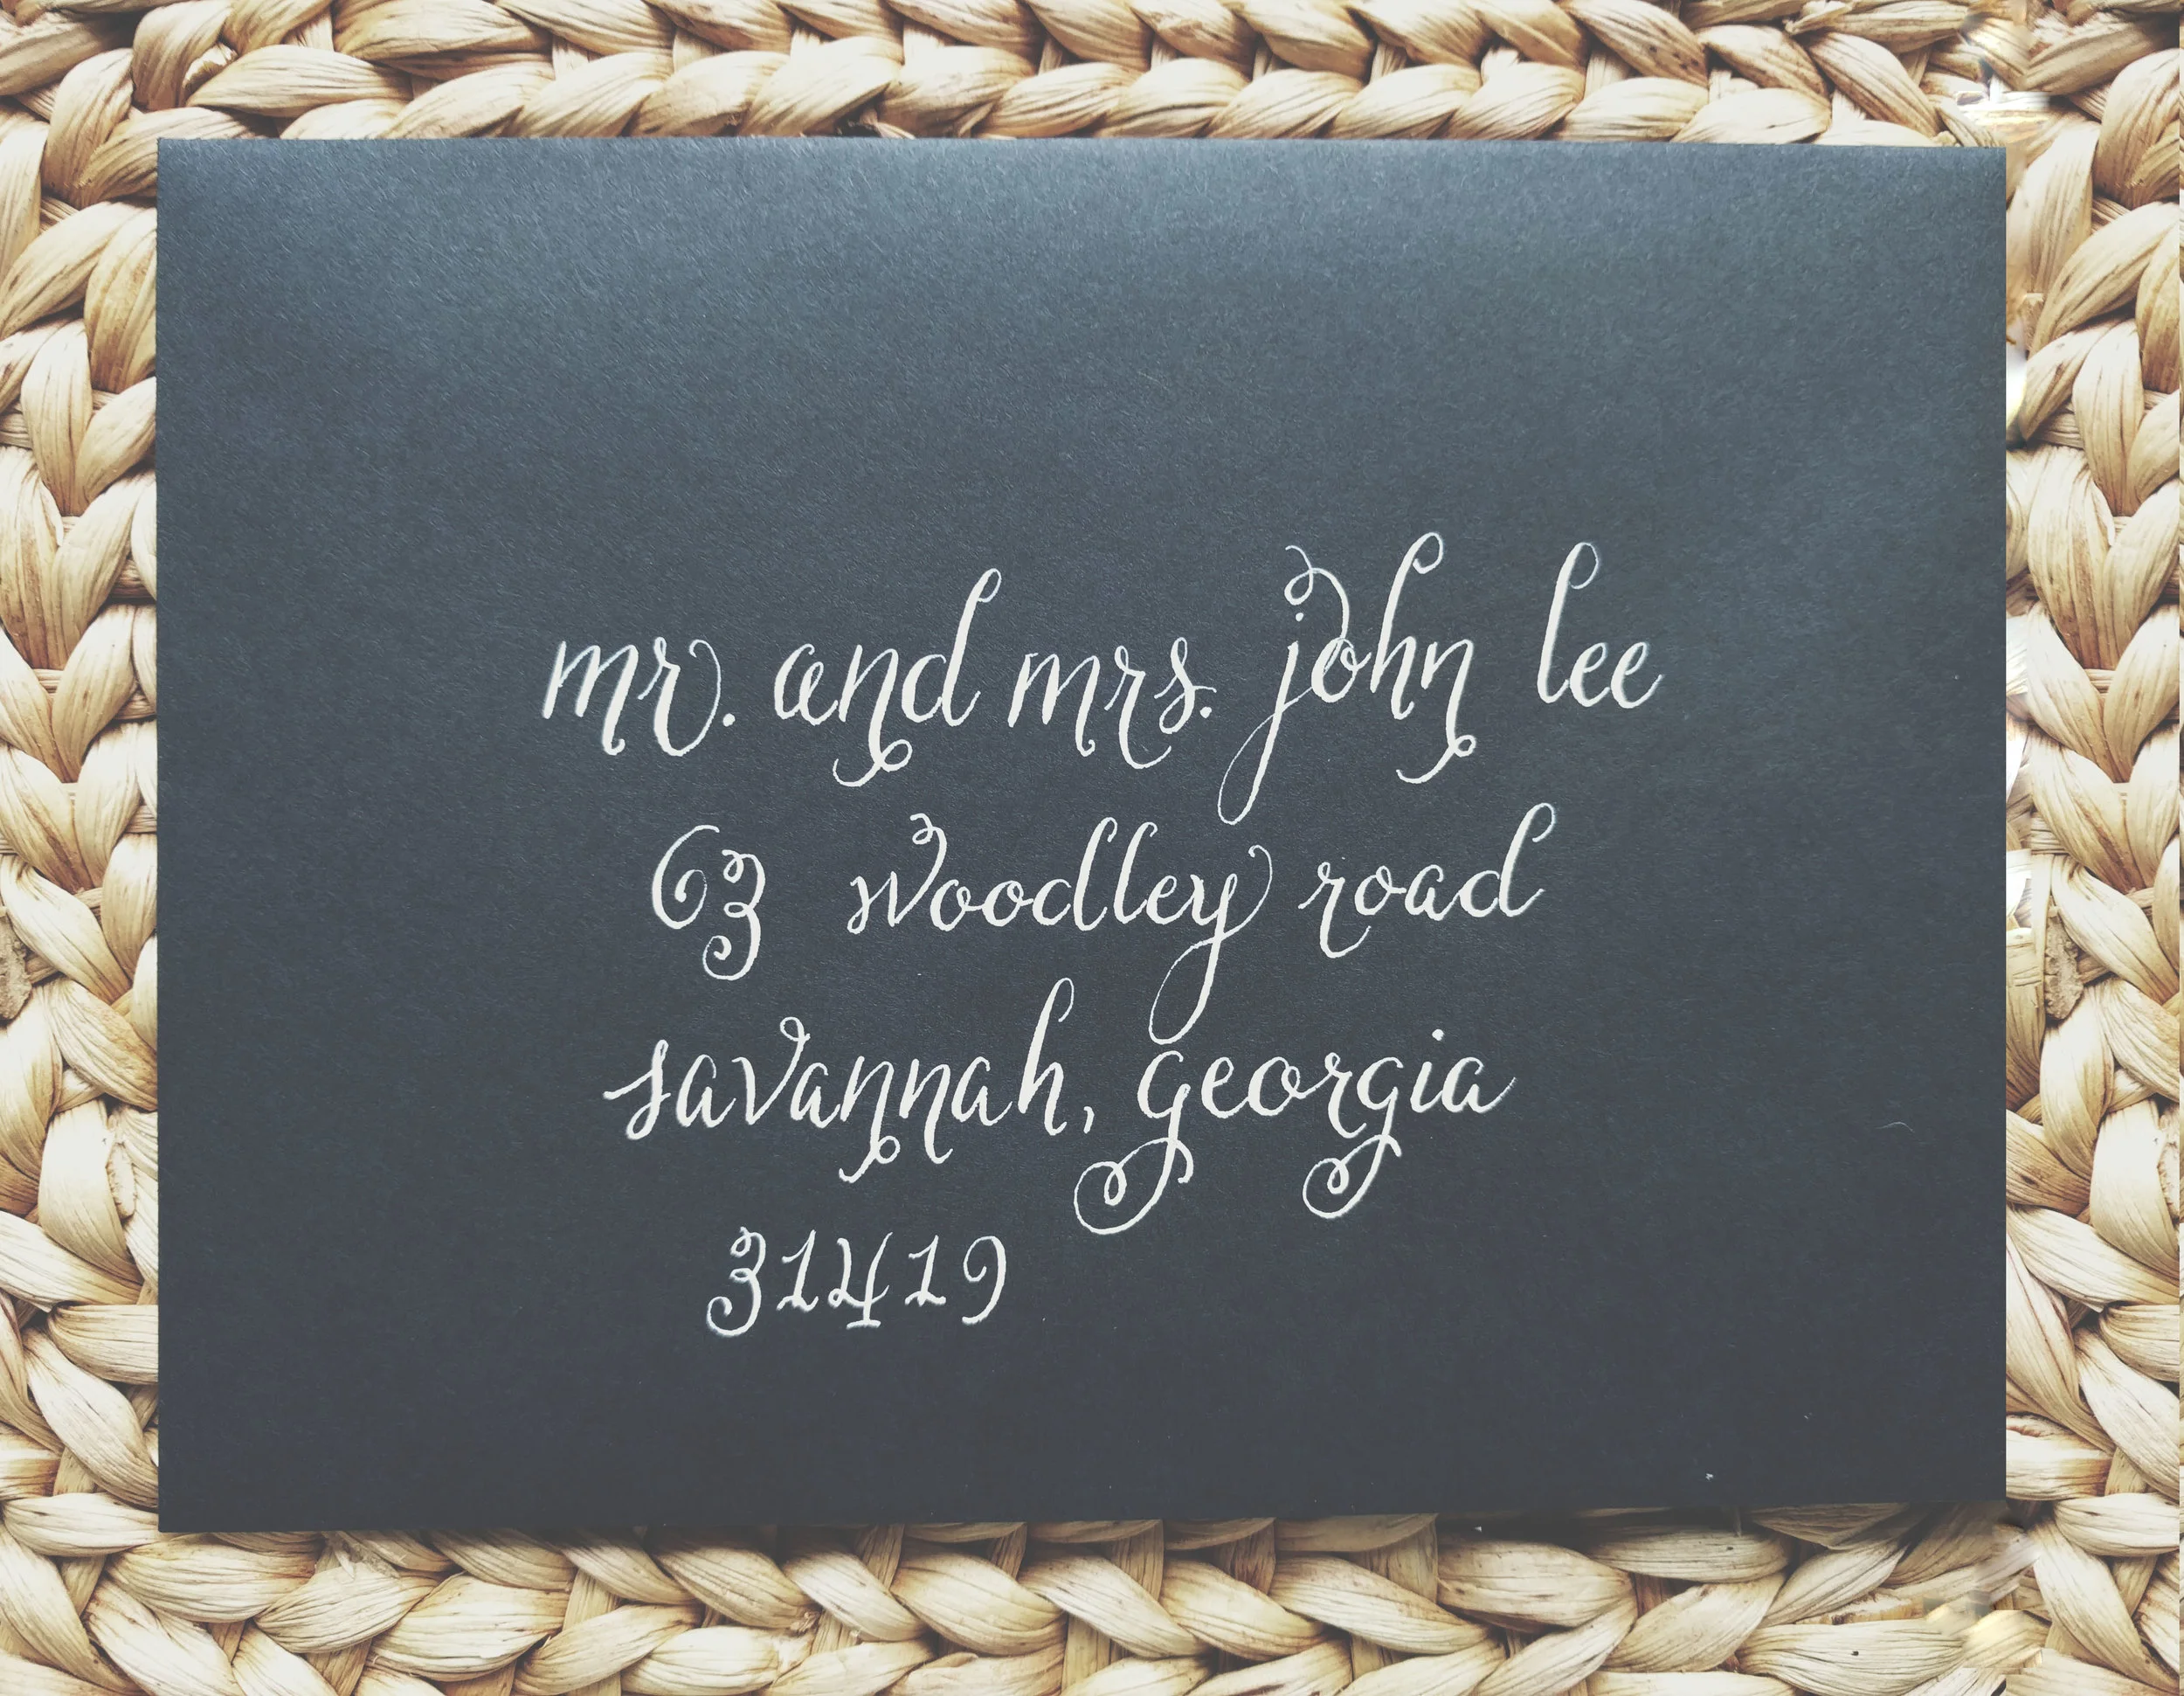 mr. and mrs. john lee
63 woodley road
savannah, georgia
31419